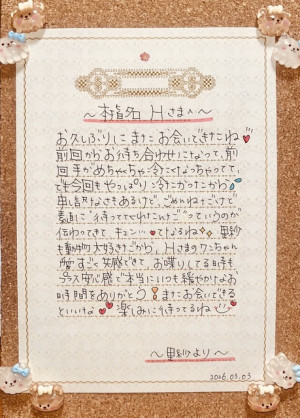 〜椎名 Hさまへ〜
お久しぶりにまたお会いできたね
前回からお待ち合わせになって、前
回手がめちゃちゃ冷たくなっちゃってて、
でも今回もやっぱり冷たかったから
申し訳なさもあるけど、ごめんねだけど
素直に待っててくれたんだってのが
伝わってきて、キュンってなるね 里紗
も動物大好きだから、Hさまのワンちゃん
愛すごく共感できて お喋りしてる時も
プラス安心感で本当にいつも緩やかなお
時間をありがとう!またお会いできる
といいな 楽しみに待ってるね
〜里紗より〜
2026.03.03